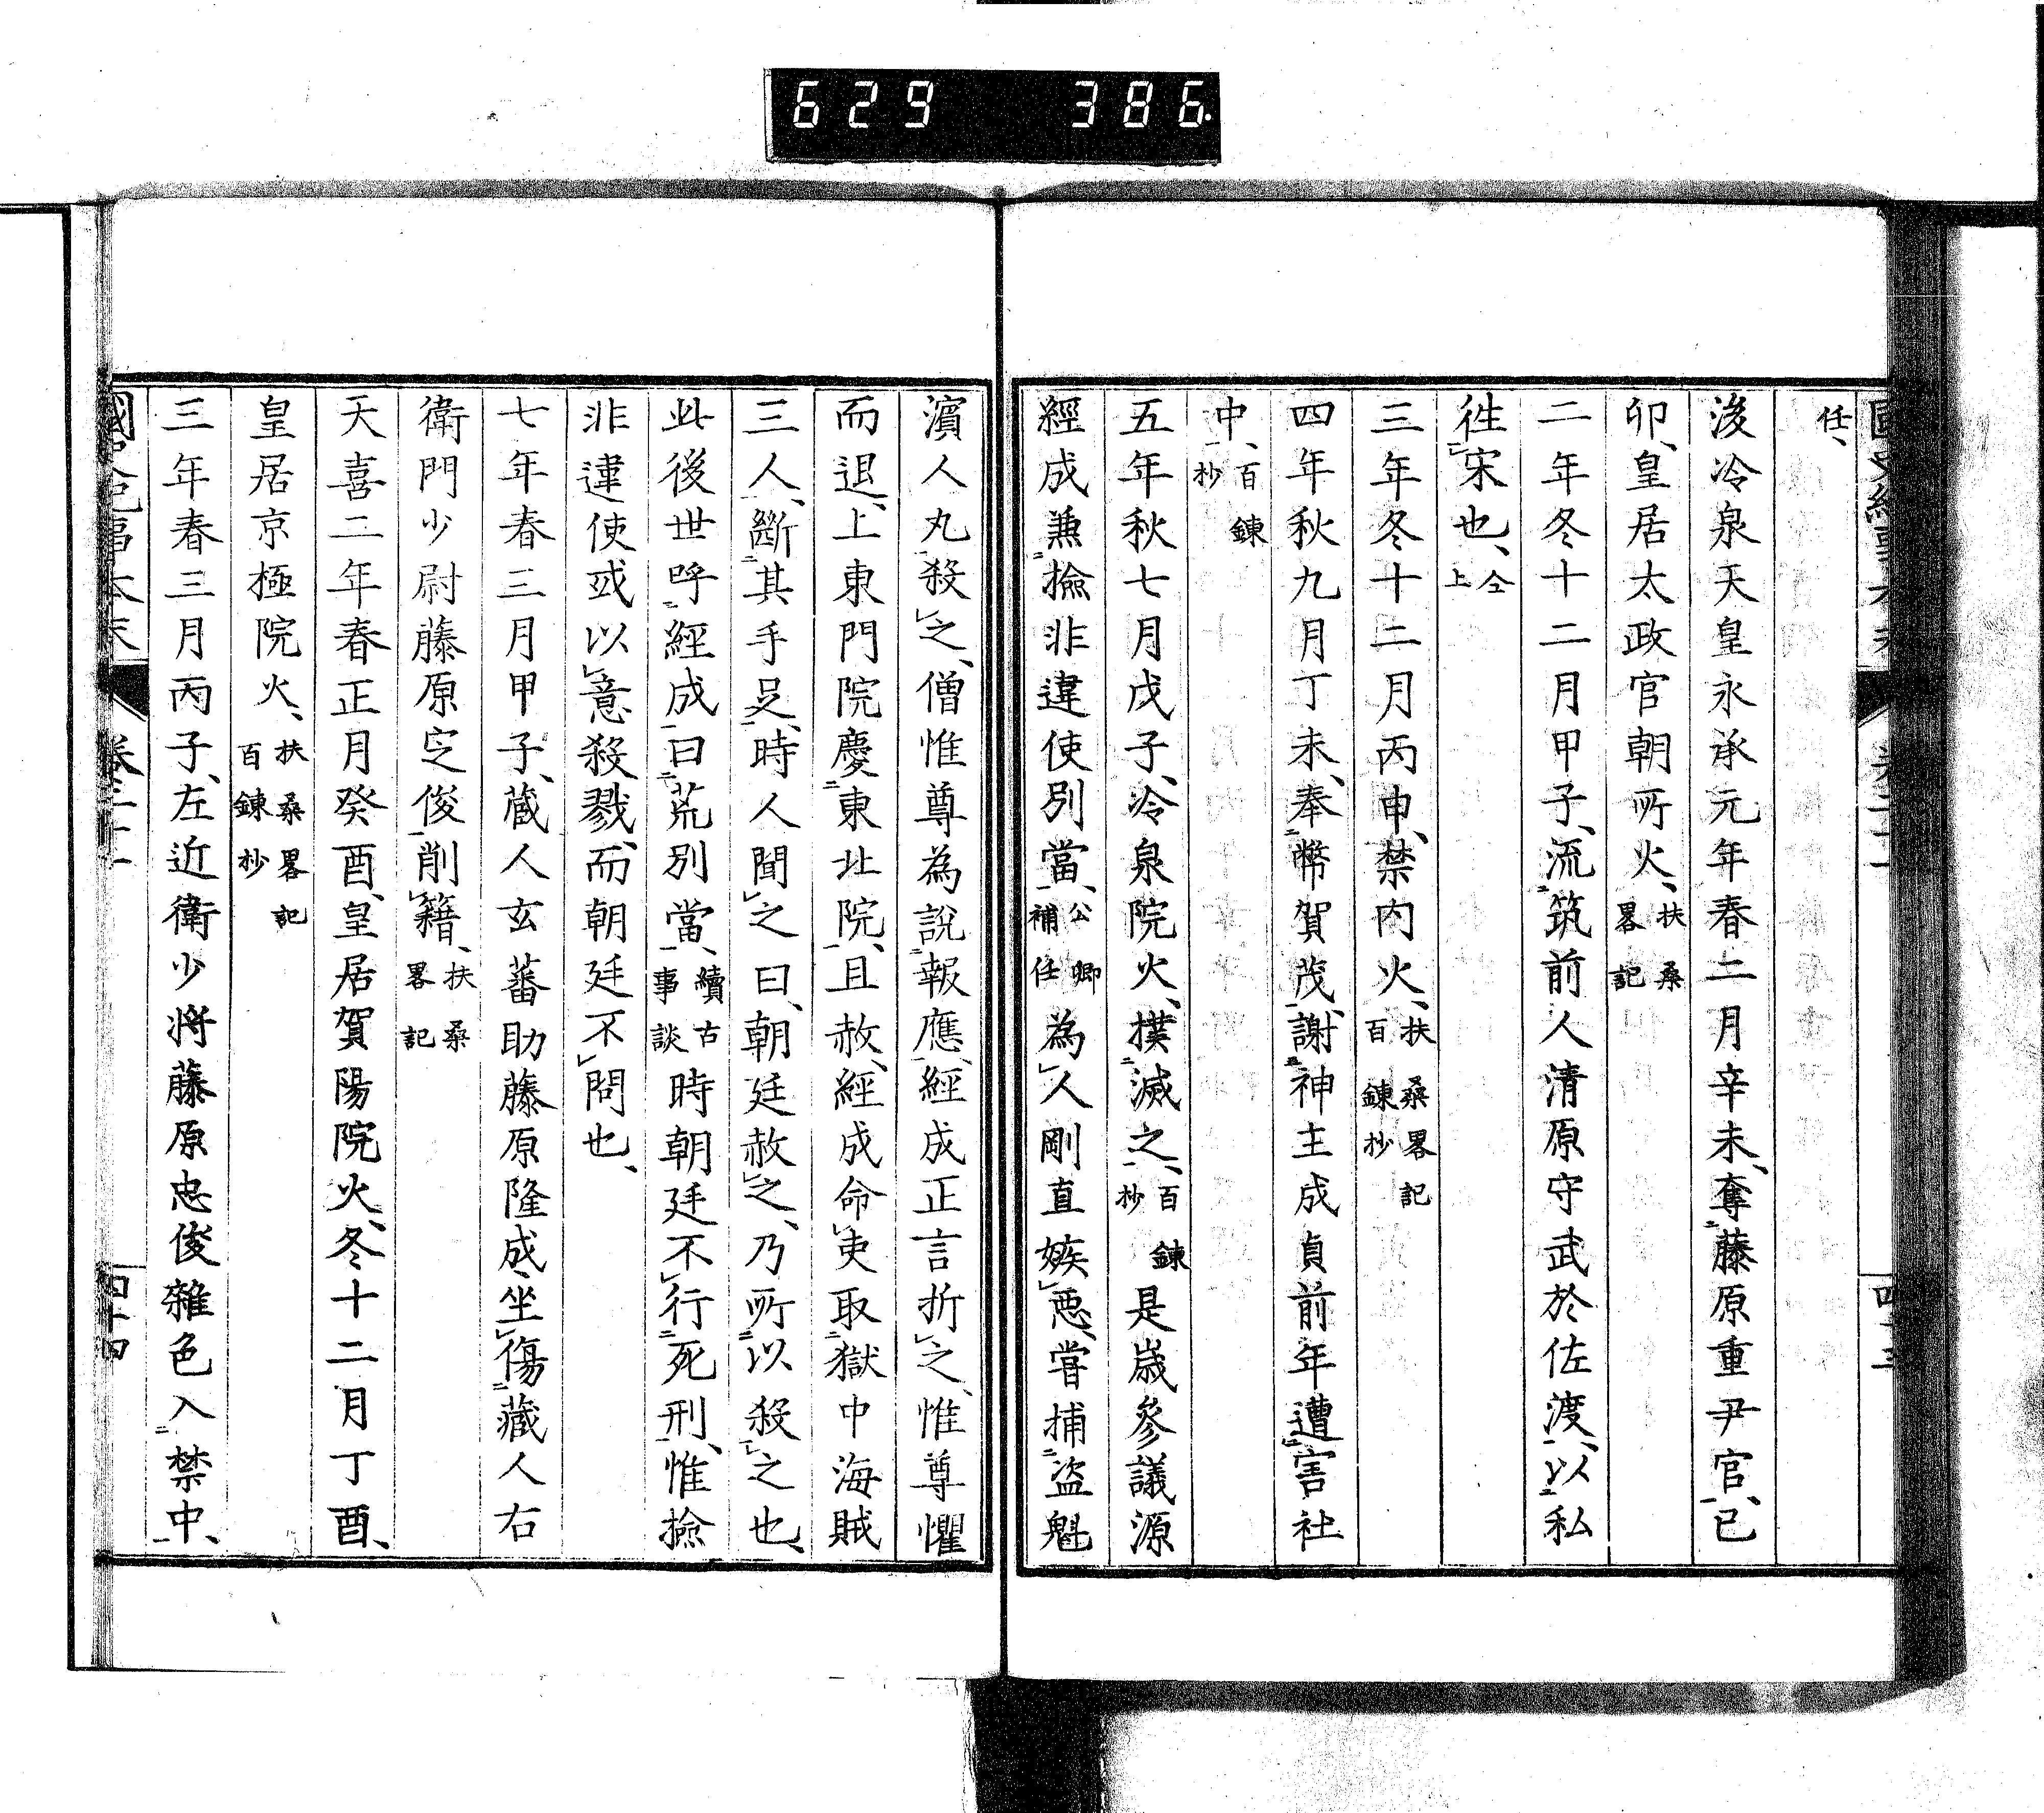 629 386
任、
後冷泉天皇永承元年春二月辛未、奪藤原重尹官、已
卯、皇居太政官朝所火、扶桑畧記
二年冬十二月甲子、流筑前人清原守武於佐渡、以私
徃宋也、仝上
三年冬十二月丙申、禁内火、扶桑畧記百鍊抄
四年秋九月丁未、奉幣賀茂、謝神主成貞前年遭害社
中、百鍊抄
五年秋七月戊子、冷泉院火、撲滅之、百鍊抄是歳參議源
經成兼撿非違使別當、公卿補任為人剛直嫉惡、嘗捕盗魁
濱人丸殺之、僧惟尊為説報應、經成正言折之、惟尊懼
而退、上東門院慶東北院、且赦、經成命吏取獄中海賊
三人、斷其手足、時人聞之曰、朝廷赦之、乃所以殺之也、
此後世呼經成曰荒別當、續古事談時朝廷不行死刑、惟撿
非違使或以意殺戮、而朝廷不問也、
七年春三月甲子、蔵人玄蕃助藤原隆成、坐傷蔵人右
衛門少尉藤原定俊削籍、扶桑畧記
天喜二年春正月癸酉、皇居賀陽院火、冬十二月丁酉、
皇居京極院火、扶桑畧記百鍊抄
三年春三月丙子、左近衛少将藤原忠俊雜色入禁中、
國史紀事本末 卷二十一 四十四